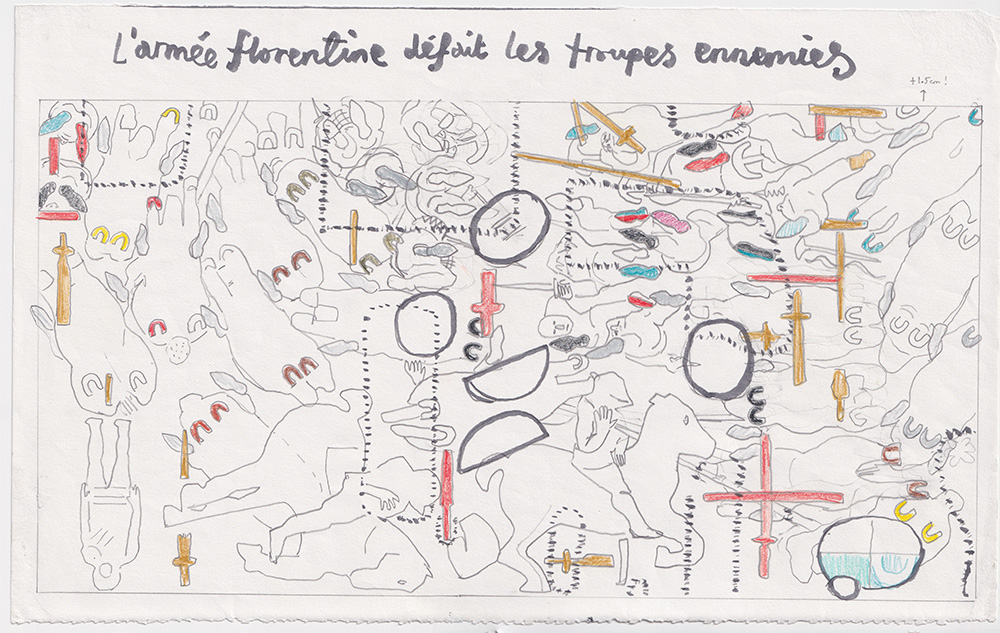 L'armée florentine défait les troupes ennemies
+1.5cm !